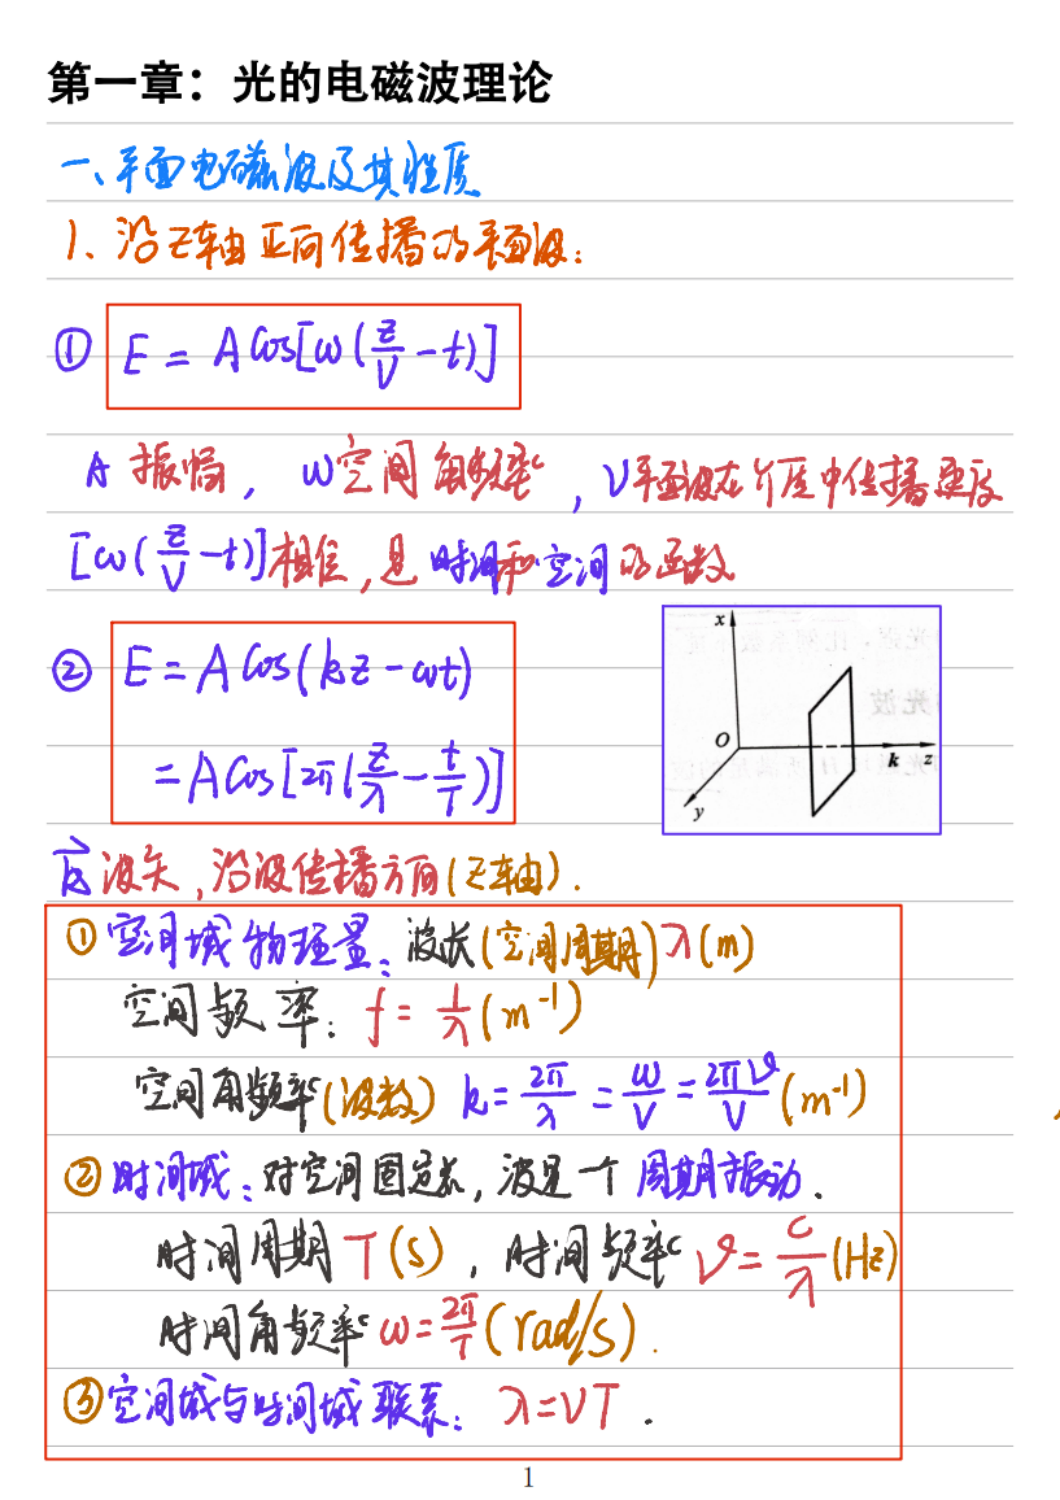 第一章：光的电磁波理论
一、平面电磁波及其性质
1、沿z轴正向传播的平面波：
① E = A cos[ω(z/V - t)]
A 振幅， ω空间角频率，V平面波在介质中传播速度
[ω(z/V - t)]相位，是时间和空间的函数
② E = A cos(kz - ωt)
= A cos[2π(z/λ - t/T)]
x
O
k z
y
k⃗ 波矢，沿波传播方向(z轴).
①空间域物理量：波长(空间周期)λ(m)
空间频率：f = 1/λ (m⁻¹)
空间角频率(波数) k = 2π/λ = ω/V = 2πν/V (m⁻¹)
②时间域：对空间固定点，波是一个周期振动.
时间周期T(s)，时间频率 ν = c/λ (Hz)
时间角频率 ω = 2π/T (rad/s).
③空间域与时间域联系：λ = VT.
1